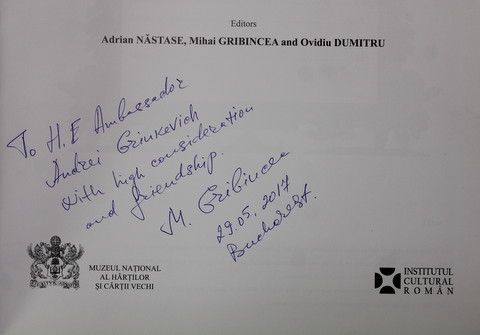 Editors
Adrian NĂSTASE, Mihai GRIBINCEA and Ovidiu DUMITRU
To H.E Ambassador
Andrei Grinkevich
with high consideration
and friendship.
M. Gribincea
29.05.2017
Bucharest.
MUZEUL NAȚIONAL
AL HĂRȚILOR
ȘI CĂRȚII VECHI
INSTITUTUL
CULTURAL
ROMÂN